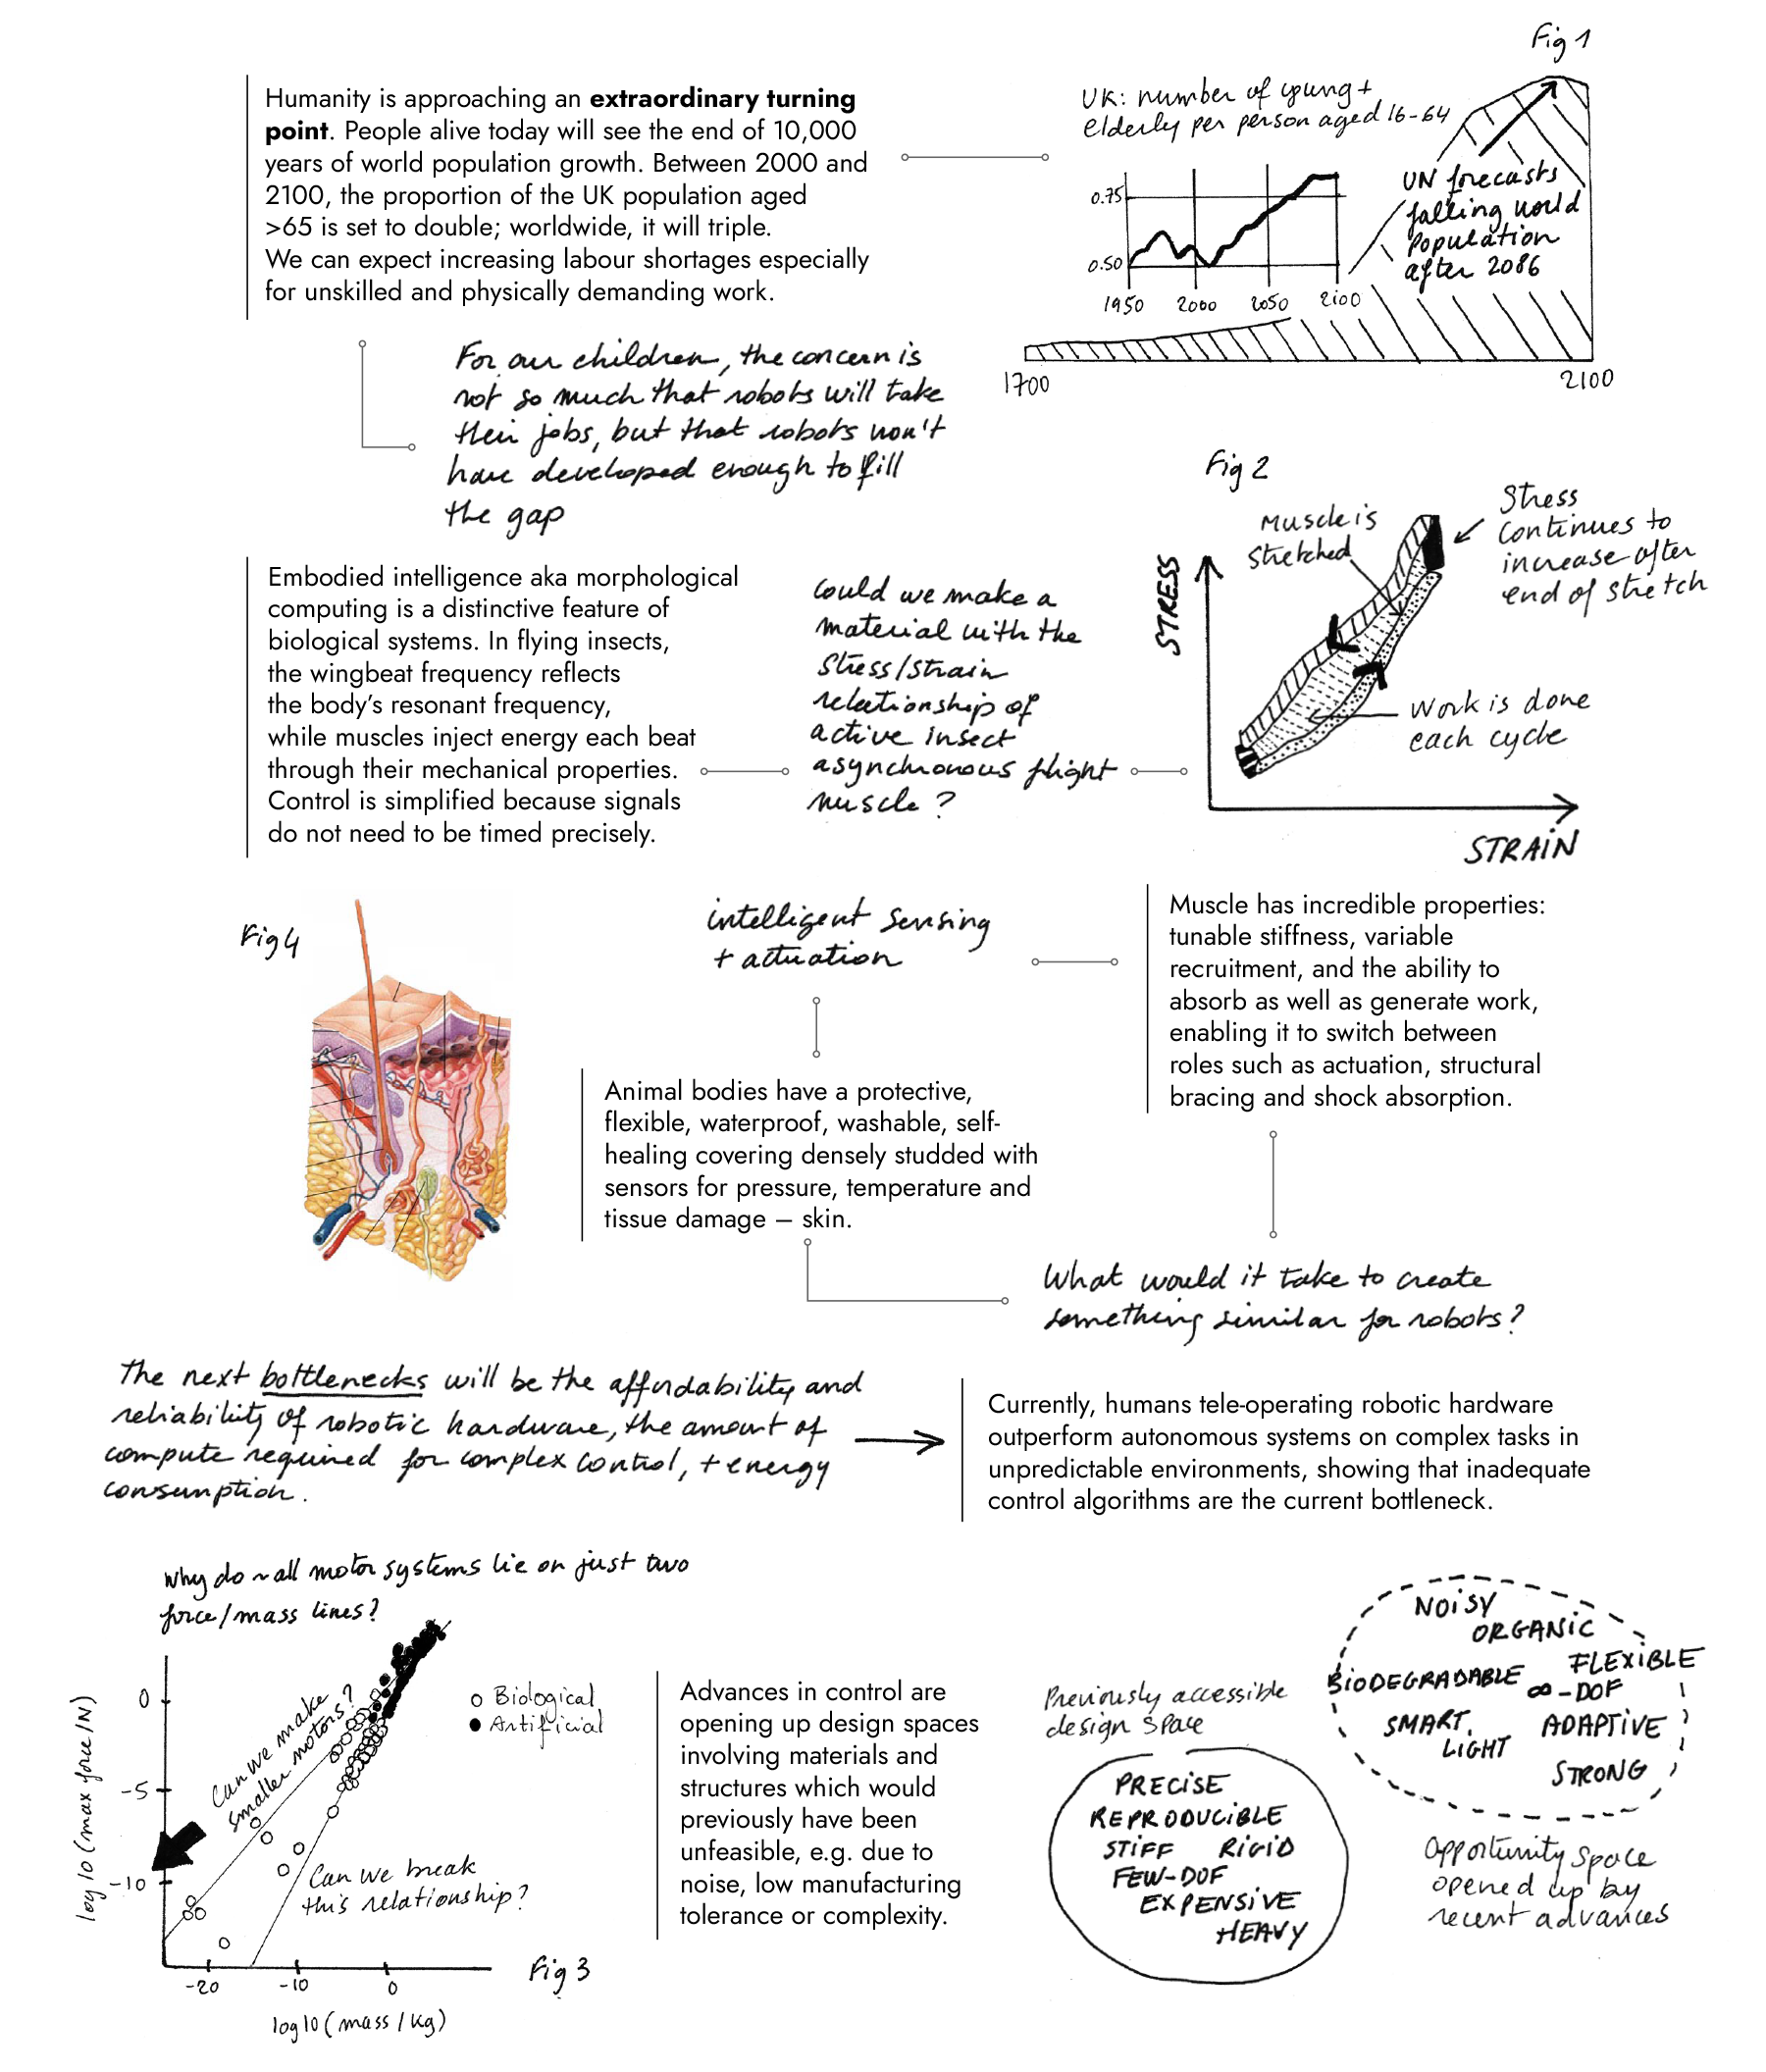 Fig 1
Humanity is approaching an extraordinary turning
point. People alive today will see the end of 10,000
years of world population growth. Between 2000 and
2100, the proportion of the UK population aged
>65 is set to double; worldwide, it will triple.
We can expect increasing labour shortages especially
for unskilled and physically demanding work.
UK: number of young +
elderly per person aged 16-64
0.75
0.50
1950 2000 2050 2100
UN forecasts
falling world
population
after 2086
1700
2100
For our children, the concern is
not so much that robots will take
their jobs, but that robots won't
have developed enough to fill
the gap
Fig 2
Muscle is
stretched
Stress
continues to
increase after
end of stretch
STRESS
Work is done
each cycle
STRAIN
Embodied intelligence aka morphological
computing is a distinctive feature of
biological systems. In flying insects,
the wingbeat frequency reflects
the body's resonant frequency,
while muscles inject energy each beat
through their mechanical properties.
Control is simplified because signals
do not need to be timed precisely.
Could we make a
material with the
stress/strain
relationship of
active insect
asynchronous flight
muscle?
Fig 4
intelligent sensing
+ actuation
Muscle has incredible properties:
tunable stiffness, variable
recruitment, and the ability to
absorb as well as generate work,
enabling it to switch between
roles such as actuation, structural
bracing and shock absorption.
Animal bodies have a protective,
flexible, waterproof, washable, self-
healing covering densely studded with
sensors for pressure, temperature and
tissue damage – skin.
What would it take to create
something similar for robots?
The next bottlenecks will be the affordability and
reliability of robotic hardware, the amount of
compute required for complex control, + energy
consumption.
Currently, humans tele-operating robotic hardware
outperform autonomous systems on complex tasks in
unpredictable environments, showing that inadequate
control algorithms are the current bottleneck.
Why do ~all motor systems lie on just two
force/mass lines?
log10 (max force/N)
0
-5
-10
Can we make
smaller motors?
Biological
Artificial
Can we break
this relationship?
-20 -10 0
log10 (mass/kg)
Fig 3
Advances in control are
opening up design spaces
involving materials and
structures which would
previously have been
unfeasible, e.g. due to
noise, low manufacturing
tolerance or complexity.
Previously accessible
design space
PRECISE
REPRODUCIBLE
STIFF RIGID
FEW-DOF
EXPENSIVE
HEAVY
NOISY
ORGANIC
FLEXIBLE
BIODEGRADABLE ∞-DOF
SMART, ADAPTIVE
LIGHT
STRONG
Opportunity space
opened up by
recent advances